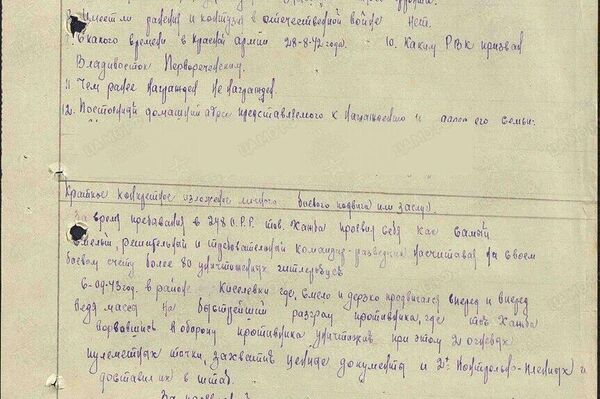 8. Имеет ли ранения и контузии в отечественной войне нет.
9. С какого времени в Красной армии 28-8-42 года. 10. Каким РВК призван
Владивосток Первореченским.
11 Чем ранее награжден не награжден.
12. Постоянный домашний адрес представляемого к награждению и адрес его семьи.
Краткое конкретное изложение личного боевого подвига или заслуг.
За время пребывания в 248 О.Р.Р. тов. Ханба проявил себя как самый
смелый, решительный и требовательный командир-разведчик насчитывая на своем
боевом счету более 80 уничтоженых гитлеровцев
6-09-43 год. в районе Киселевки где, смело и дерзко продвигался вперед и вперед
ведя массу на быстрейший разгром противника, где тов Ханба
ворвавшись в оборону противника уничтожив при этом 2 огневых
пулеметных точки, захватив ценные документы и 2х Контрольно-пленных и
доставил их в штаб.
За